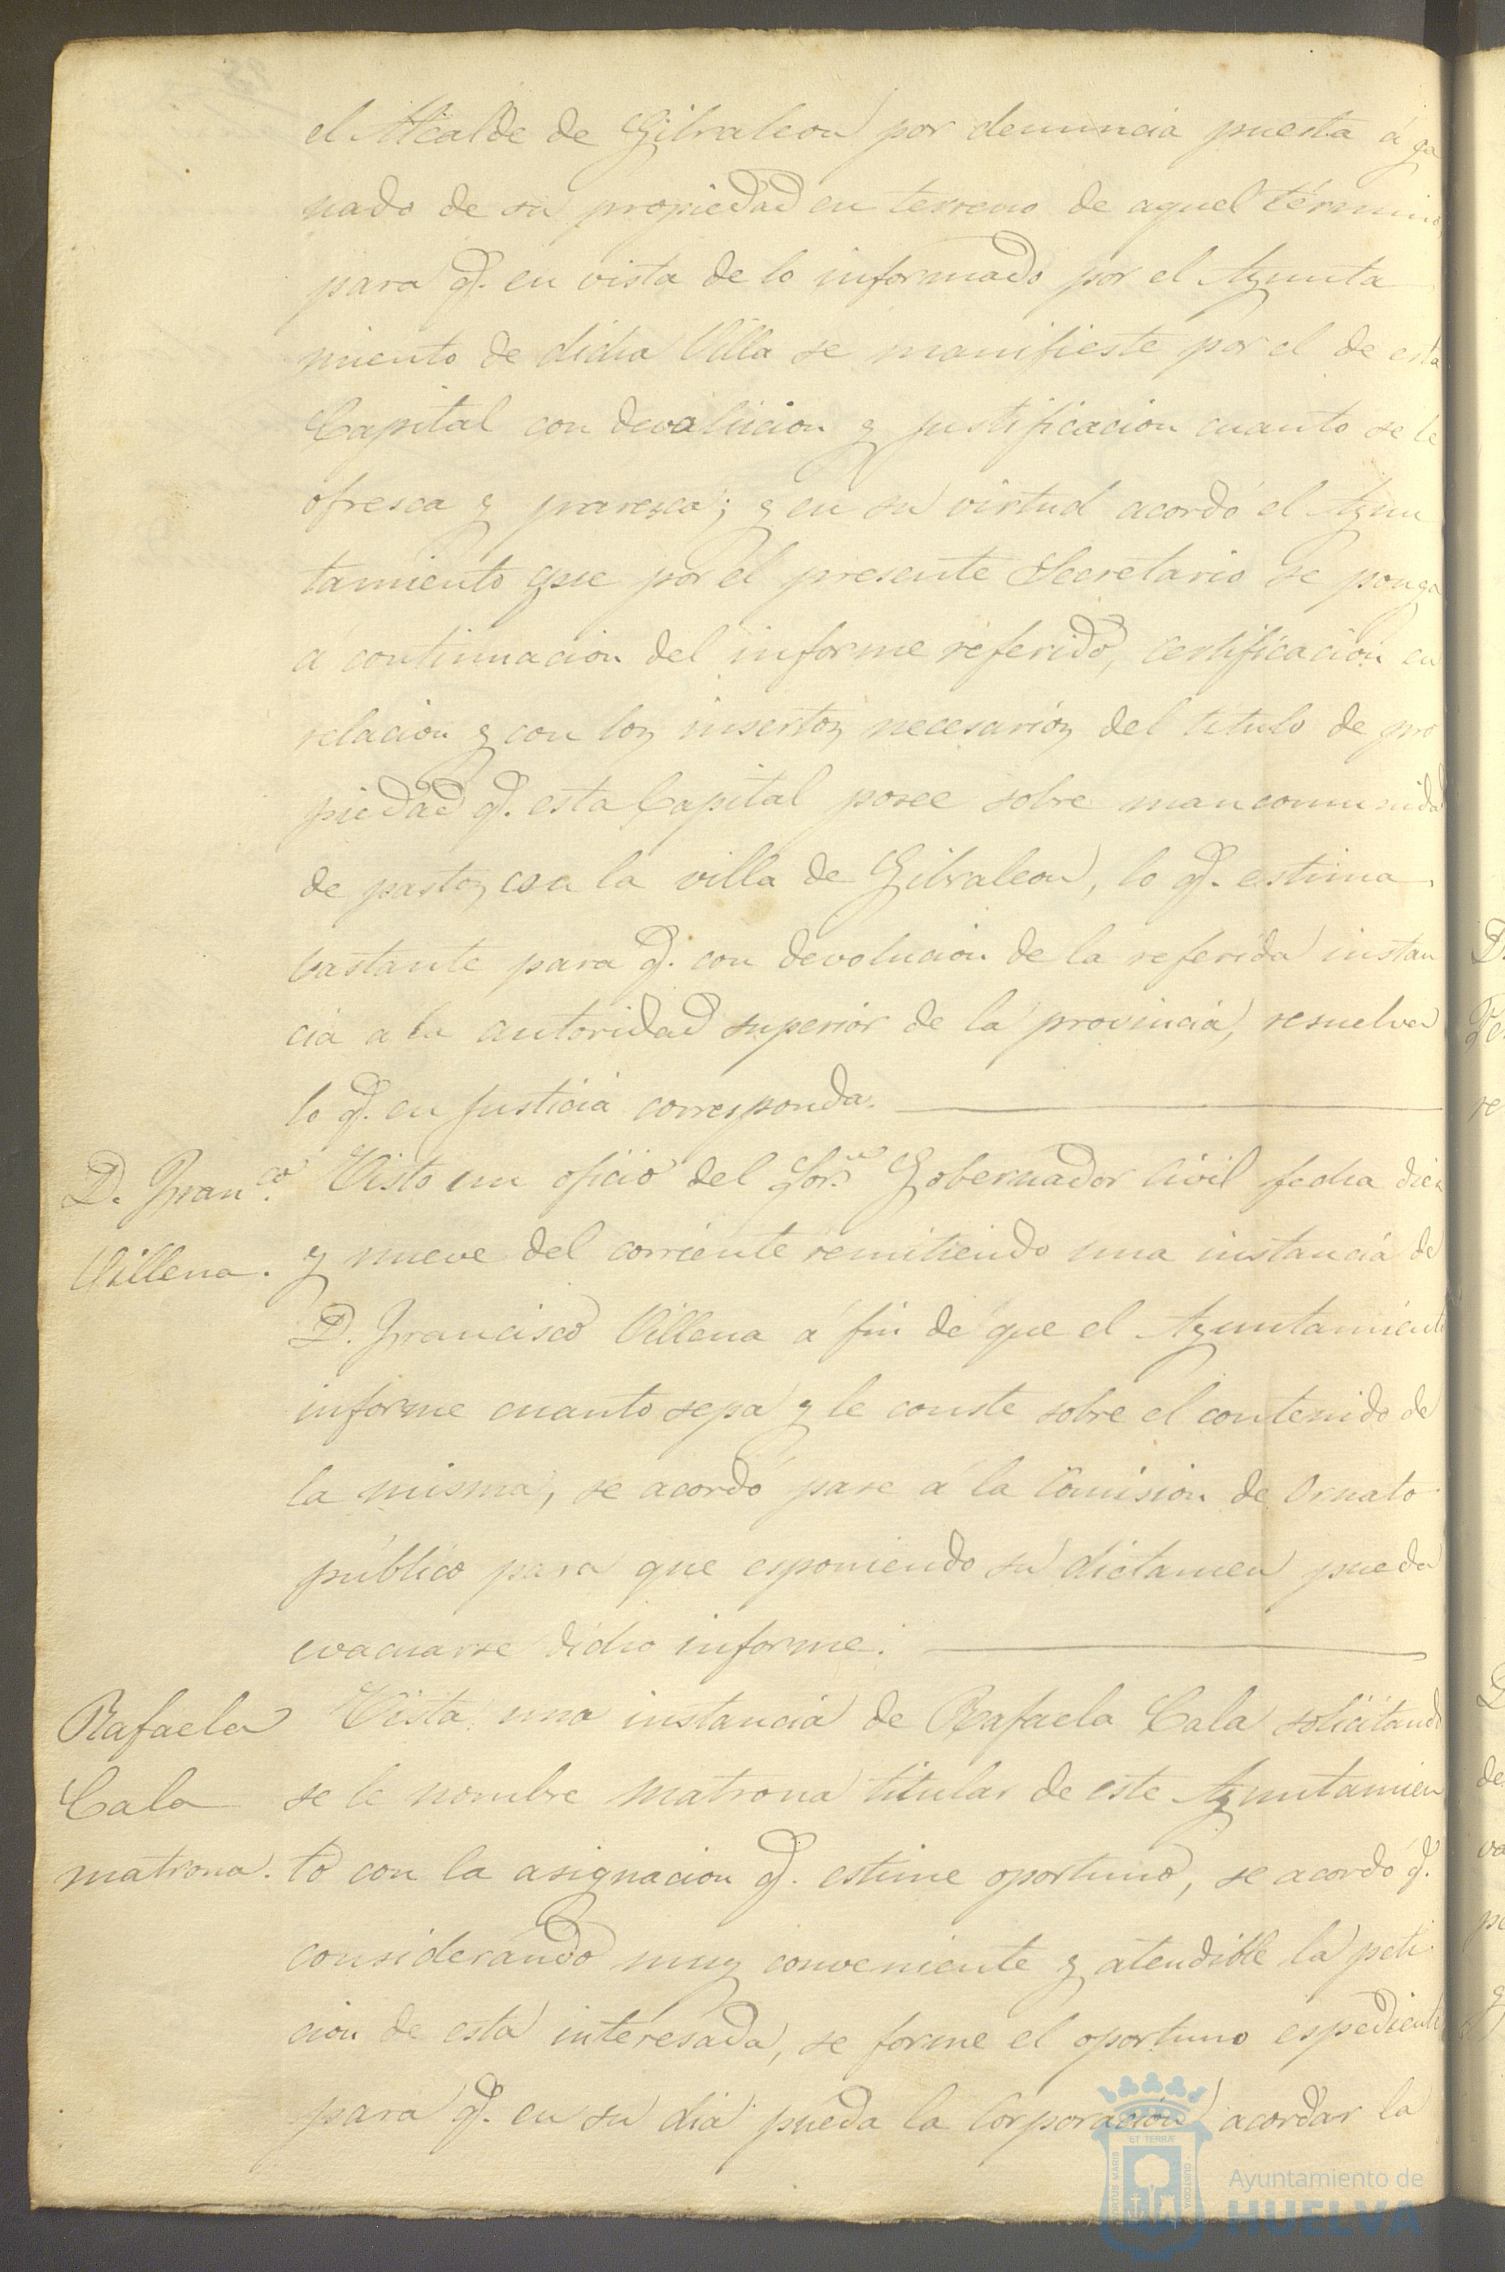 el Alcalde de Gibraleon por denuncia puesta á ga
nado de su propiedad en terreno de aquel término
para q.e en vista de lo informado por el Ayunta
miento de dicha Villa se manifieste por el de esta
Capital con devolucion y justificacion cuanto se le
ofresca y paresca; y en su virtud acordó el Ayun
tamiento que por el presente Secretario se ponga
á continuacion del informe referido, certificacion en
relacion y con los insertos necesarios del titulo de pro
piedad q.e esta Capital posee sobre mancomunidad
de pastos con la villa de Gibraleon, lo q.e estima
bastante para q.e con devolucion de la referida instan
cia a la autoridad superior de la provincia, resuelva
lo q.e en justicia corresponda.
D. Fran.co
Villena.
Visto un oficio del Sor. Gobernador Civil fecha diez
y nueve del corriente remitiendo una instancia de
D. Francisco Villena á fin de que el Ayuntamiento
informe cuanto sepa y le conste sobre el contenido de
la misma, se acordó pase á la Comision de Ornato
público para que esponiendo su dictamen pueda
evacuarse dicho informe.
Rafaela
Cala
matrona.
Vista una instancia de Rafaela Cala solicitando
se le nombre matrona titular de este Ayuntamien
to con la asignacion q.e estime oportuno, se acordó q.e
considerando muy conveniente y atendible la peti
cion de esta interesada, se forme el oportuno espediente
para q.e en su dia pueda la Corporacion acordar la
Ayuntamiento de
HUELVA